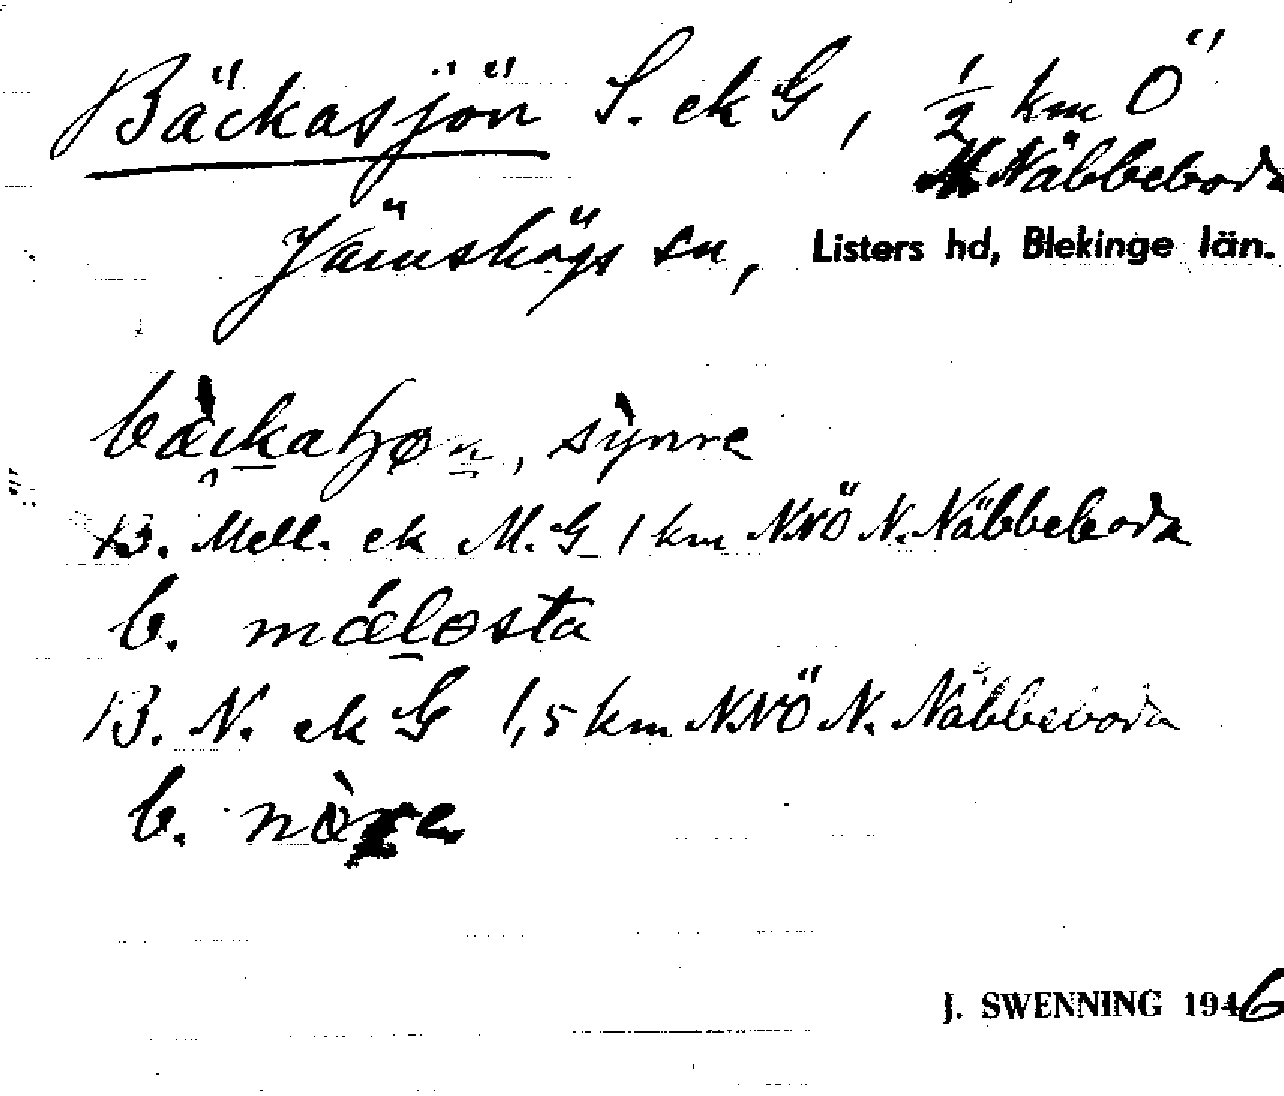 Bäckasjön S. ek G, 1/2 km Ö
N. Näbbeboda
Jämshögs sn, Listers hd, Blekinge län.
bækahøn, sỳnre
B. Mell. ek M. G 1 km NNÖ N. Näbbeboda
b. mǽlosta
B. N. ek G 1,5 km NNÖ N. Näbbeboda
b. nòre
J. SWENNING 1946